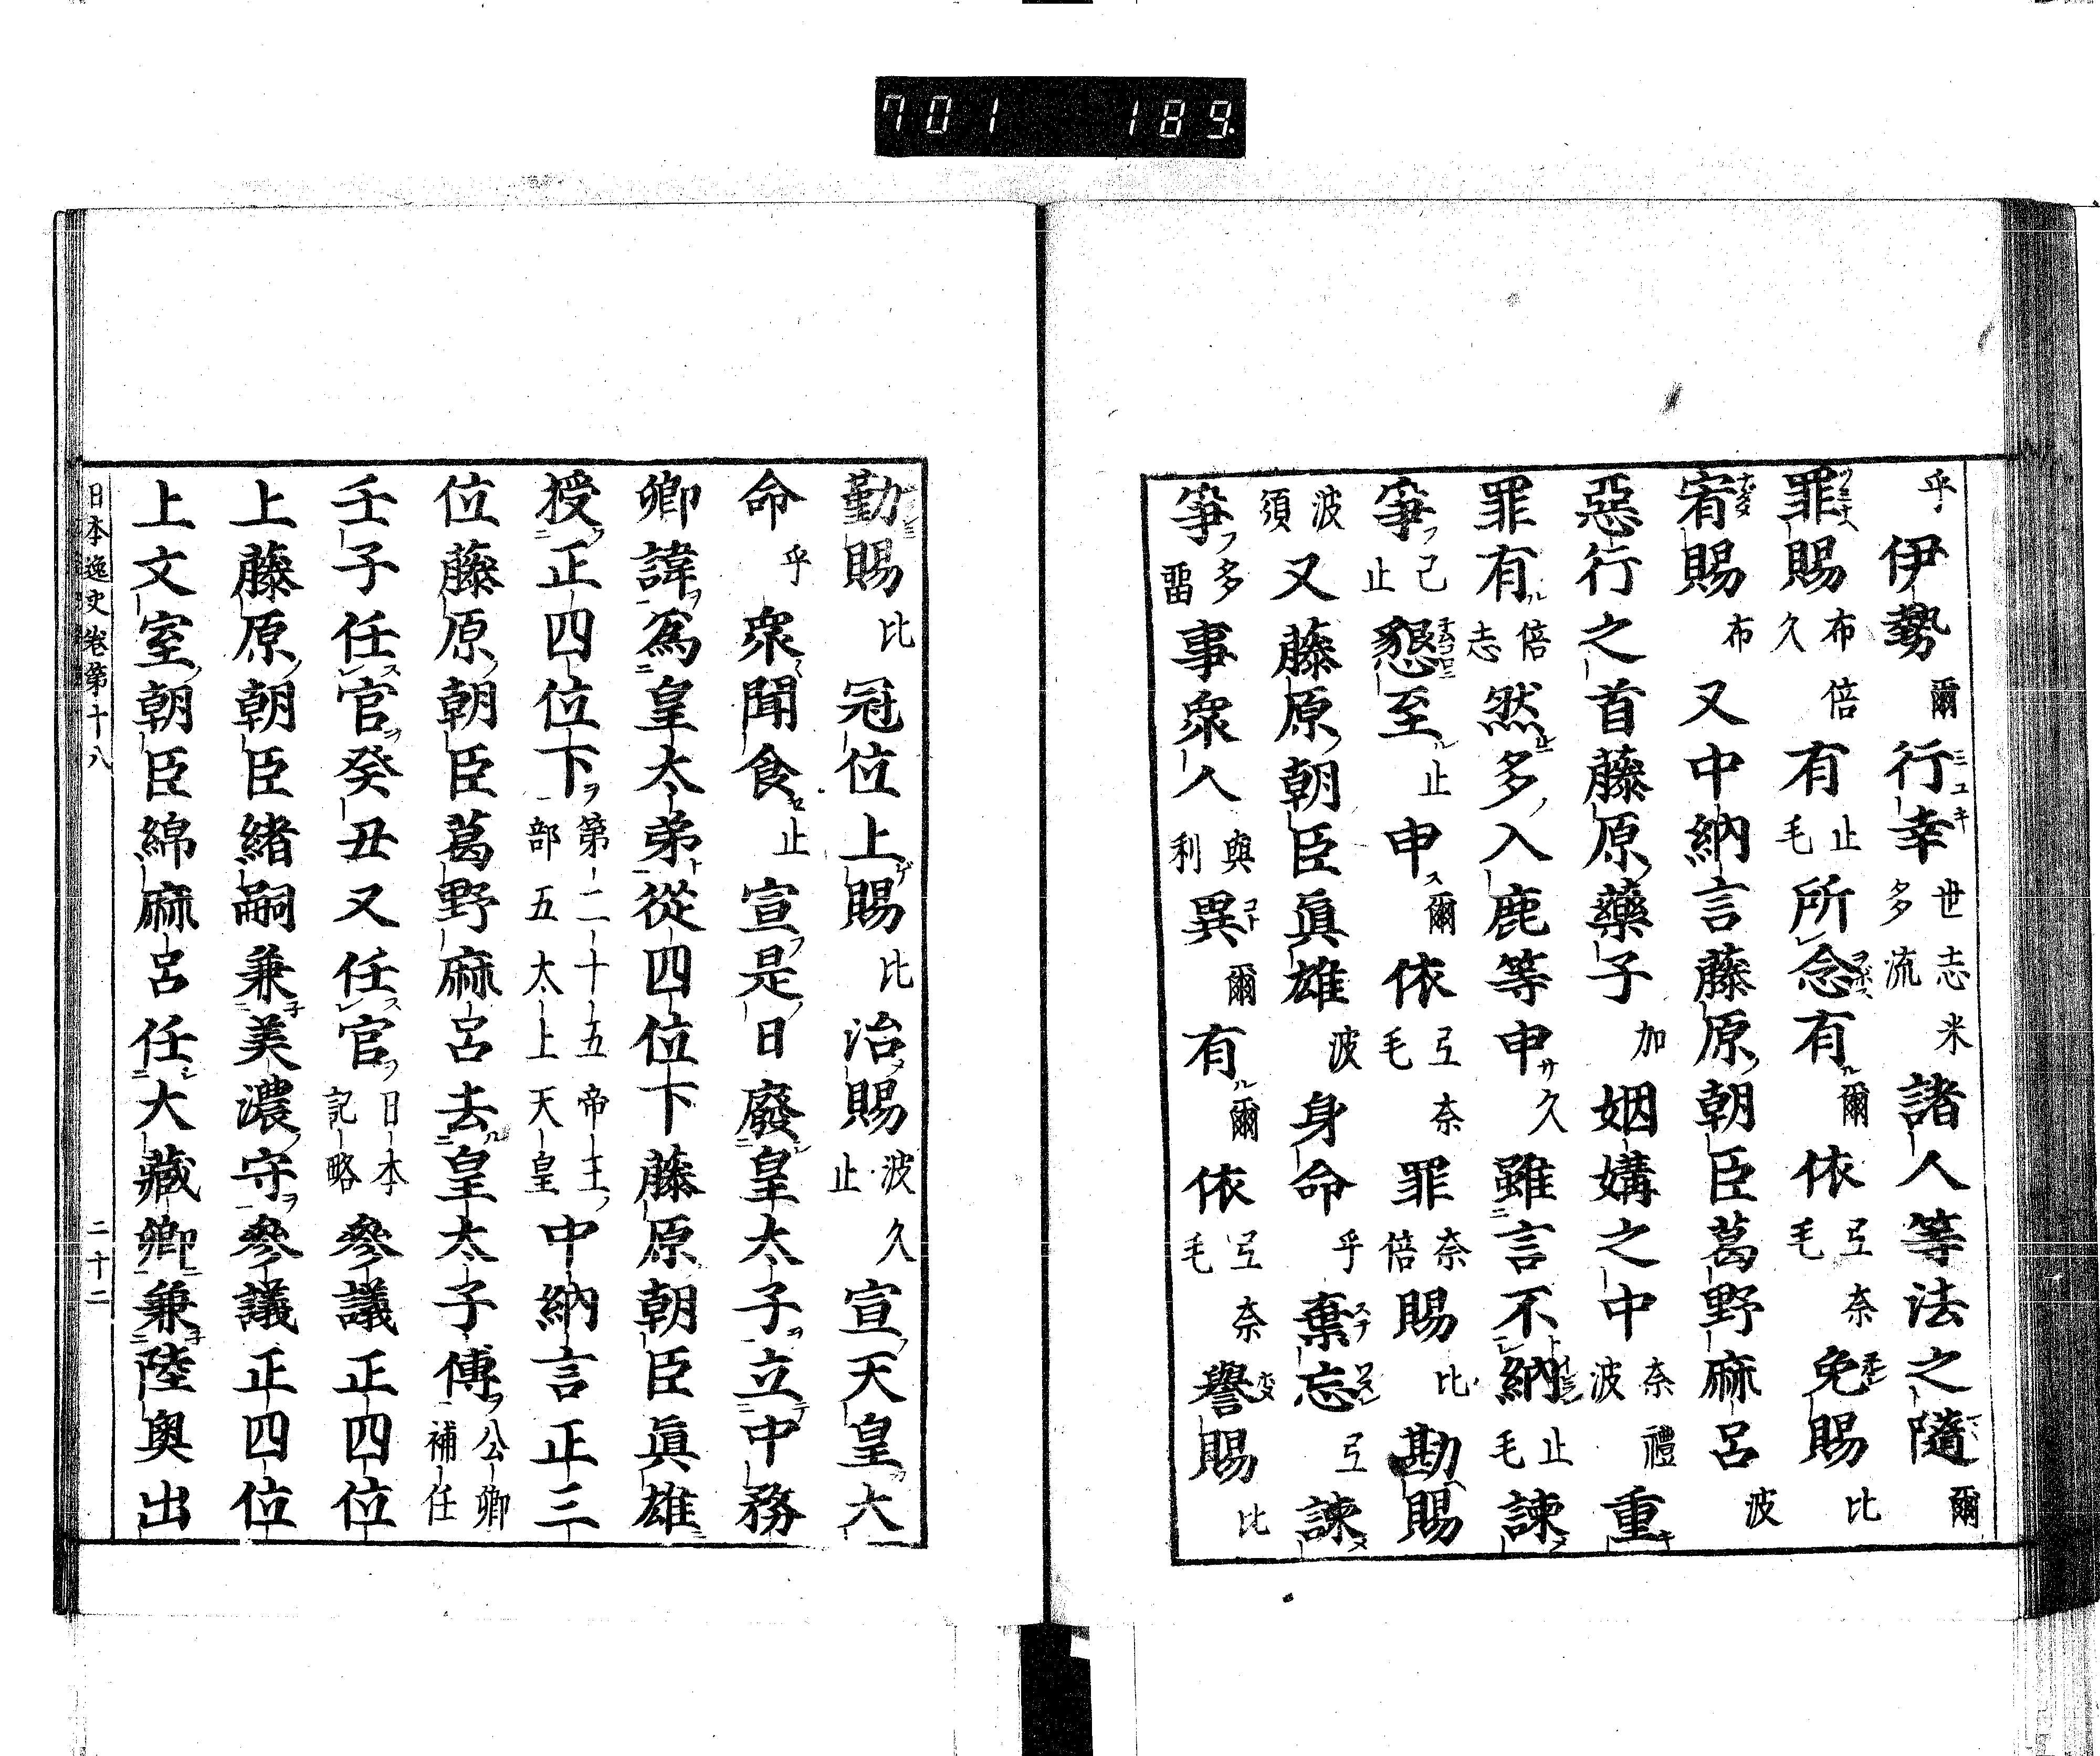 701 189
乎伊勢爾行幸世多志流米諸人等法之隨爾
罪賜布久倍有止毛所念有爾依弖毛奈免賜比
宥賜布又中納言藤原朝臣葛野麻呂波
惡行之首藤原藥子加姻媾之中奈波禮重
罪有倍志然多入鹿等申久雖言不納止毛諫
爭己止懇至止申爾依弖毛奈罪奈倍賜比勘賜
波須又藤原朝臣眞雄波身命乎棄忘弖諫
爭多留事衆人與利異爾有爾依弖毛奈譽賜比
勤賜比冠位上賜比治賜波止久宣天皇大
命乎衆聞食止宣是日廢皇太子立中務
卿諱爲皇太弟從四位下藤原朝臣眞雄
授正四位下第二十五帝王部五太上天皇中納言正三
位藤原朝臣葛野麻呂去皇太子傅公卿補任
壬子任官癸丑又任官日本記略參議正四位
上藤原朝臣緖嗣兼美濃守參議正四位
上文室朝臣綿麻呂任大藏卿兼陸奧出
日本逸史卷第十八 二十二